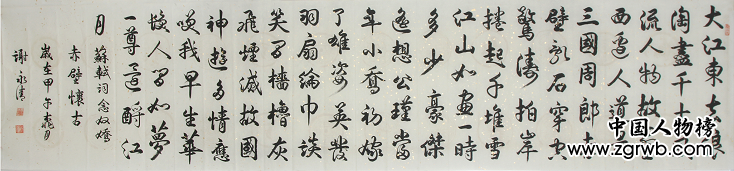 大江東去浪
淘盡千古風
流人物故壘
西邊人道是
三國周郎赤
壁亂石穿空
驚濤拍岸
捲起千堆雪
江山如畫一時
多少豪傑
遙想公瑾當
年小喬初嫁
了雄姿英發
羽扇綸巾談
笑間檣櫓灰
飛煙滅故國
神遊多情應
笑我早生華
髮人間如夢
一尊還酹江
月 蘇軾詞念奴嬌
赤壁懷古
歲在甲午月
謝永清
中国人物榜
www.zgrwb.com